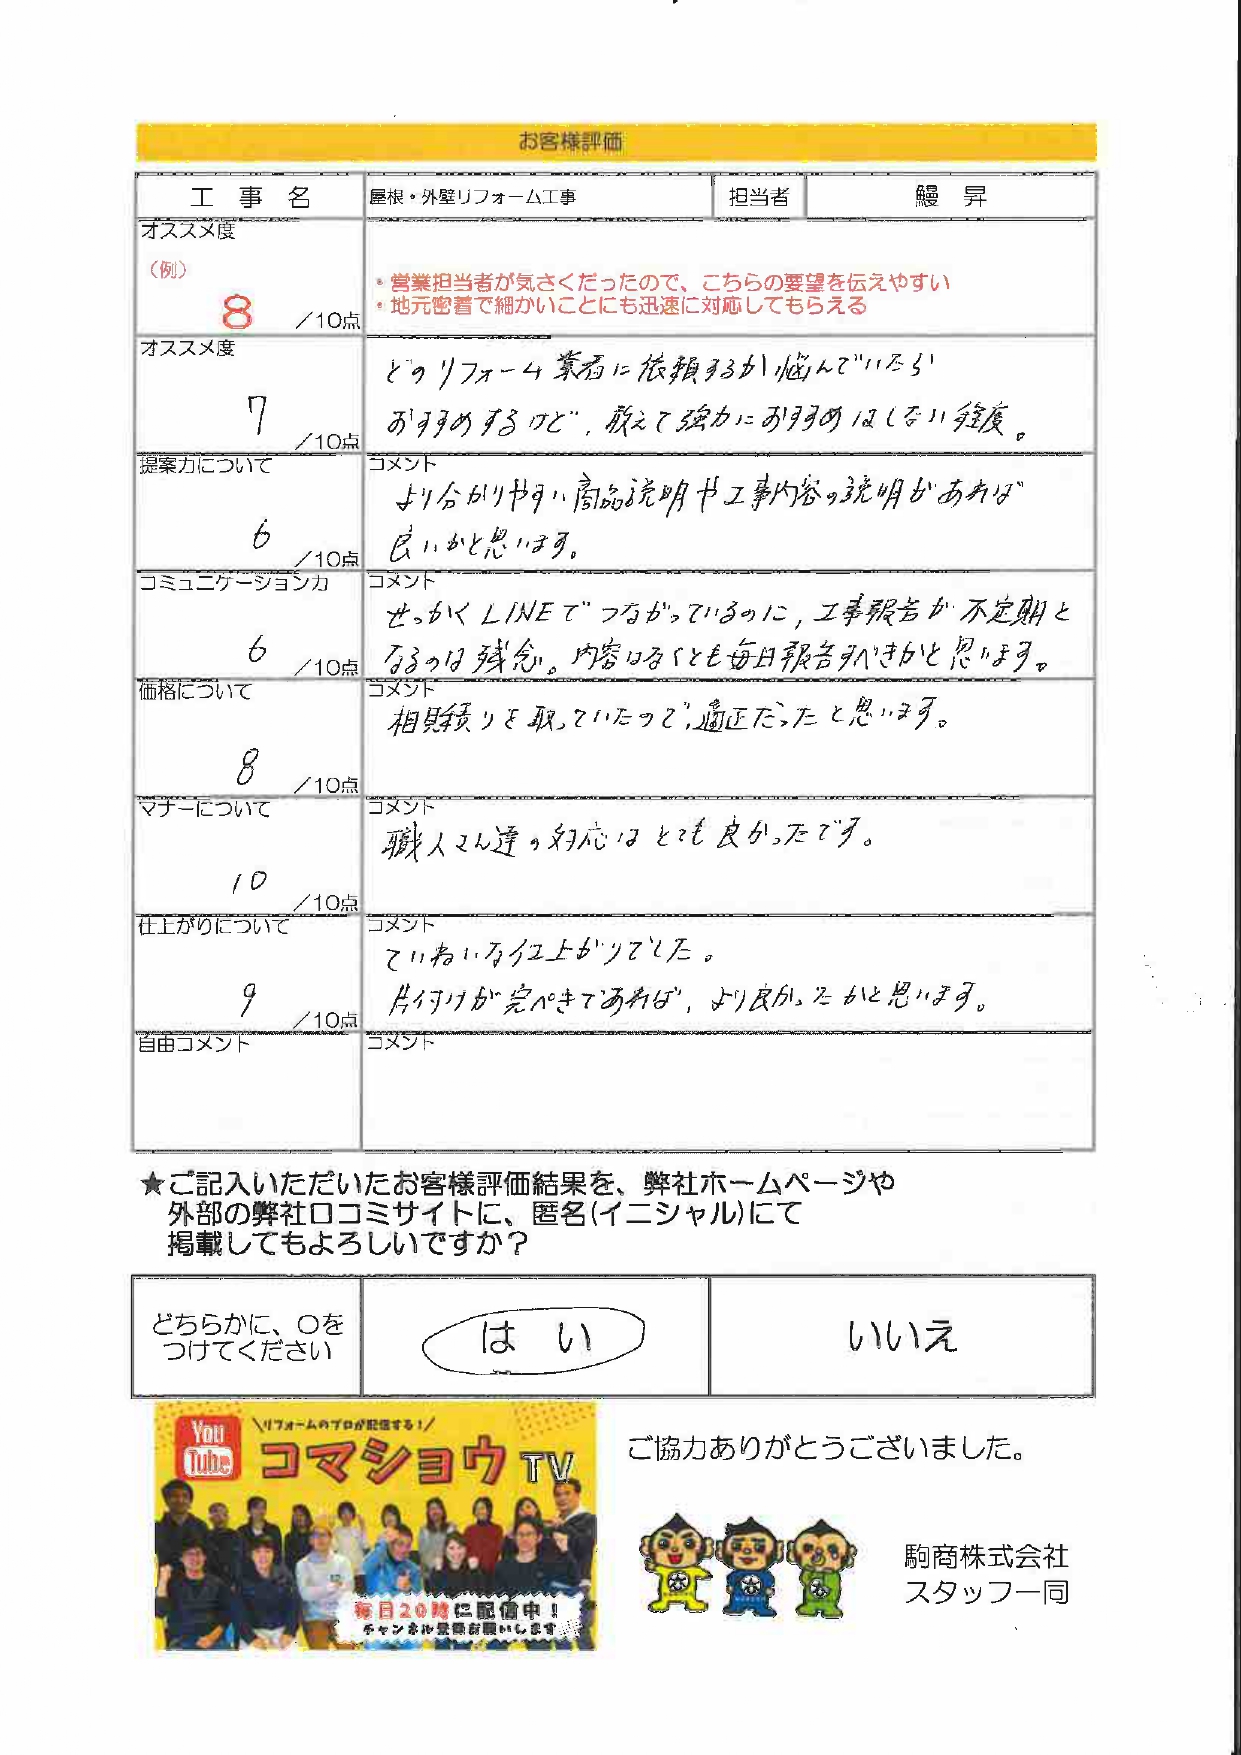 お客様評価
工 事 名 屋根・外壁リフォーム工事 担当者 鰻 昇
オススメ度
（例）
8 ／10点
・営業担当者が気さくだったので、こちらの要望を伝えやすい
・地元密着で細かいことにも迅速に対応してもらえる
オススメ度
7 ／10点
どのリフォーム業者に依頼するか悩んでいたら
おすすめするけど、敢えて強力におすすめはしない程度。
提案力について
6 ／10点
コメント
より分かりやすい商品説明や工事内容の説明があれば
良いかと思います。
コミュニケーション力
6 ／10点
コメント
せっかくLINEでつながっているのに、工事報告が不定期と
なるのは残念。内容はなくとも毎日報告すべきかと思います。
価格について
8 ／10点
コメント
相見積りを取っていたので、適正だったと思います。
マナーについて
10 ／10点
コメント
職人さん達の対応はとても良かったです。
仕上がりについて
9 ／10点
コメント
ていねいな仕上がりでした。
片付けが完ぺきであれば、より良かったかと思います。
自由コメント
コメント
★ご記入いただいたお客様評価結果を、弊社ホームページや
外部の弊社口コミサイトに、匿名(イニシャル)にて
掲載してもよろしいですか？
どちらかに、〇を
つけてください
は い
いいえ
You
Tube
＼リフォームのプロが配信する！／
コマショウTV
毎日20時に配信中！
チャンネル登録お願いします
ご協力ありがとうございました。
駒商株式会社
スタッフ一同